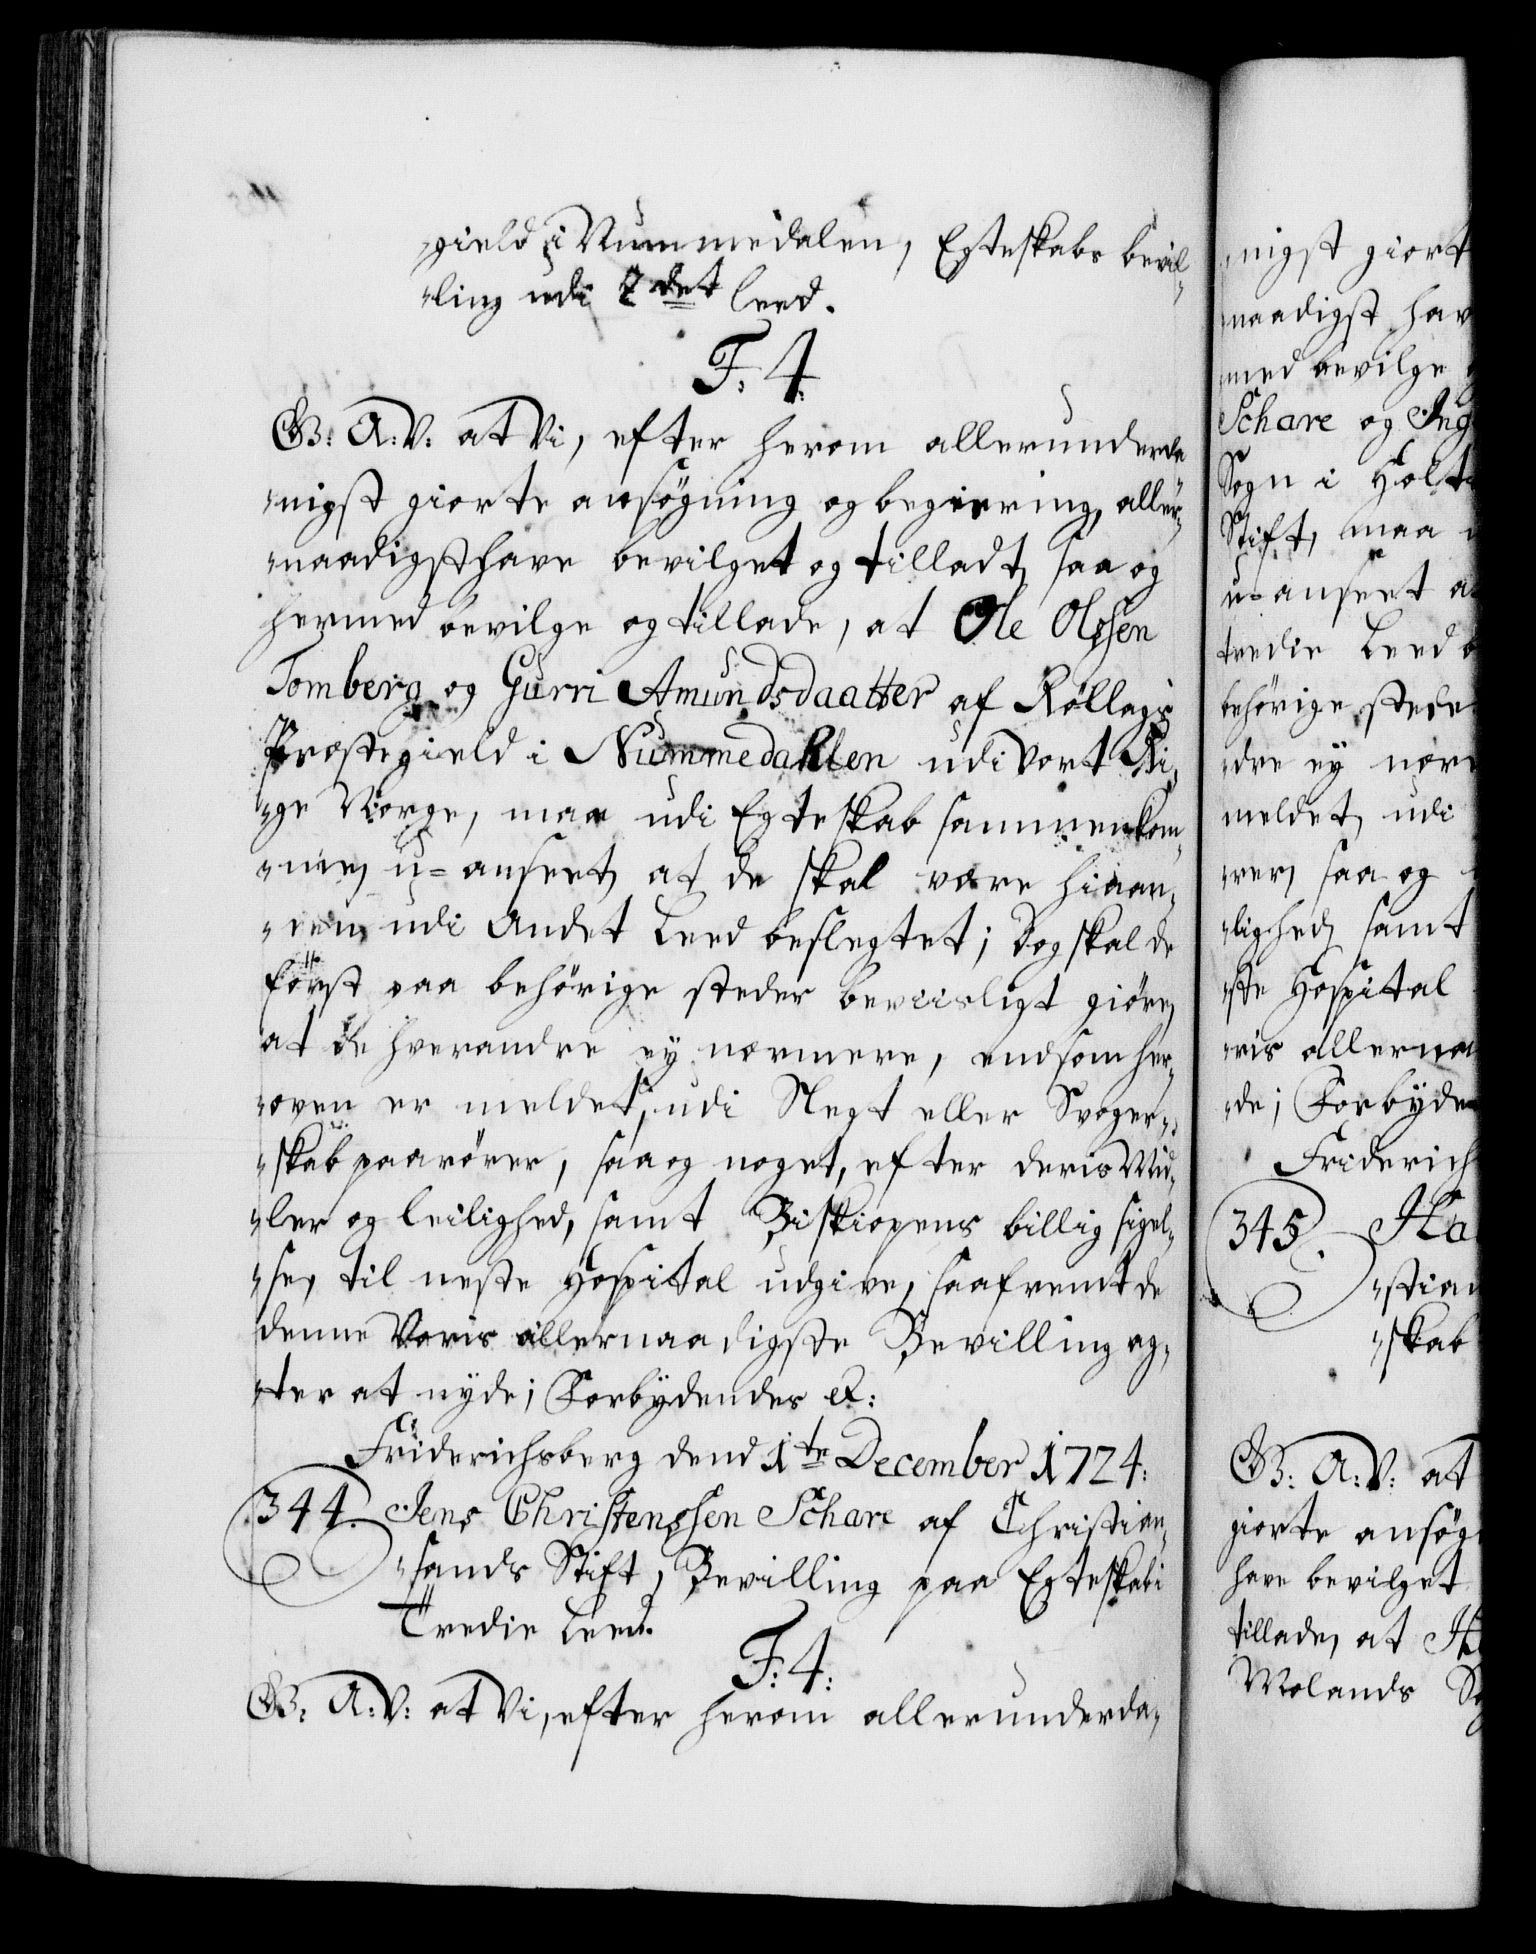 -gield i Nummedalen, Egteskabs bevil-
-ling udi 2det leed.
F: 4:
G: A: V: at Vi, efter herom allerunderda
-nigst giorte ansøgning og begiering, aller-
-naadigst have bevilget og tilladt, saa og
hermed bevilge og tillade, at Ole Olssen
Tomberg og Gurri Amundsdaatter af Rollags
Præstegield i Nummedahlen udi Vort Ri-
-ge Norge, maa udi Egteskab sammenkom-
-me, u-anseet, at de skal være hinan-
-den udi Andet Leed beslegtet; Dog skal de
først paa behörige steder beviisligt giöre,
at de hverandre ey nærmere, end som her-
-oven er meldet, udi Slegt eller Svoger-
-skab paarörer, saa og noget, efter deris Mid-
-ler og leilighed, samt Biskopens billig sigel-
-se, til neste Hospital udgive, saafremt de
denne Voris allernaadigste Bevilling ag-
-ter at nyde; Forbydendes &:
Friderichsberg dend 1te December 1724:
344. Jens Christenssen Schare af Christian-
-sands Stift, Bevilling paa Egteskab i
Tredie Leed.
F: 4:
G: A: V: at Vi, efter herom allerunderda-
-nigst giort
-naadigst hav
-med bevilge
Schare og Ing
Sogn i Holt
Stift, maa
u-anseet a
tredie Leed b
behörige stede
-dre ey nærm
meldet, udi
-rer, saa og
-lighed, samt
-ste Hospital
-ris allerna
-de; Forbyden
Friderich
345. Ha
-stian
-skab
G: A: V: at
giorte ansøg
have bevilget
tillade, at H
Molands So